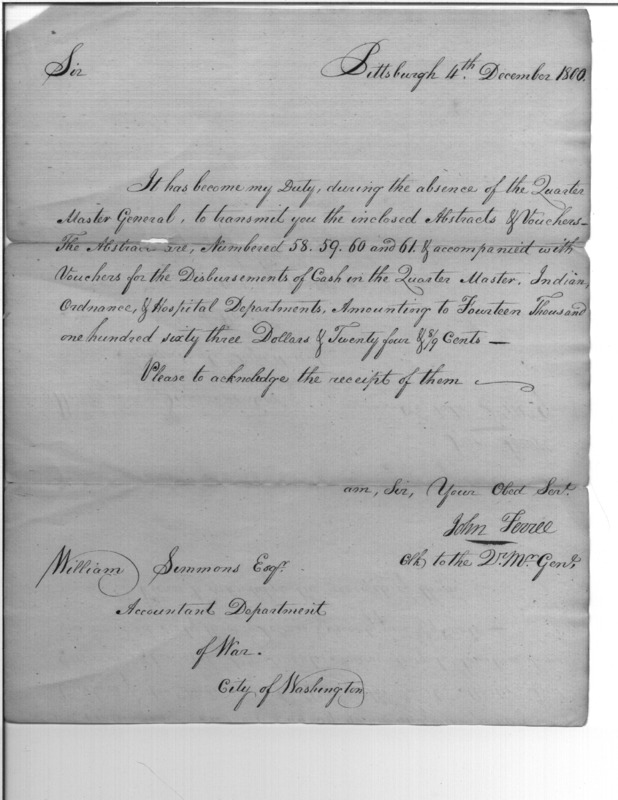 Sir Pittsburgh 4th December 1800.
It has become my Duty, during the absence of the Quarter
Master General, to transmit you the inclosed Abstracts & Vouchers—
The Abstracts are, Numbered 58. 59. 60 and 61. & accompanied with
Vouchers for the Disbursements of Cash in the Quarter Master, Indian,
Ordnance, & Hospital Departments, Amounting to Fourteen Thousand
one hundred sixty three Dollars & Twenty four & 8/9 Cents —
Please to acknoledge the receipt of them
am, Sir, Your Obed Servt.
John Ferree
Clk to the Qr. Mr Genl,
William Simmons Esqr.
Accountant Department
of War.
City of Washington